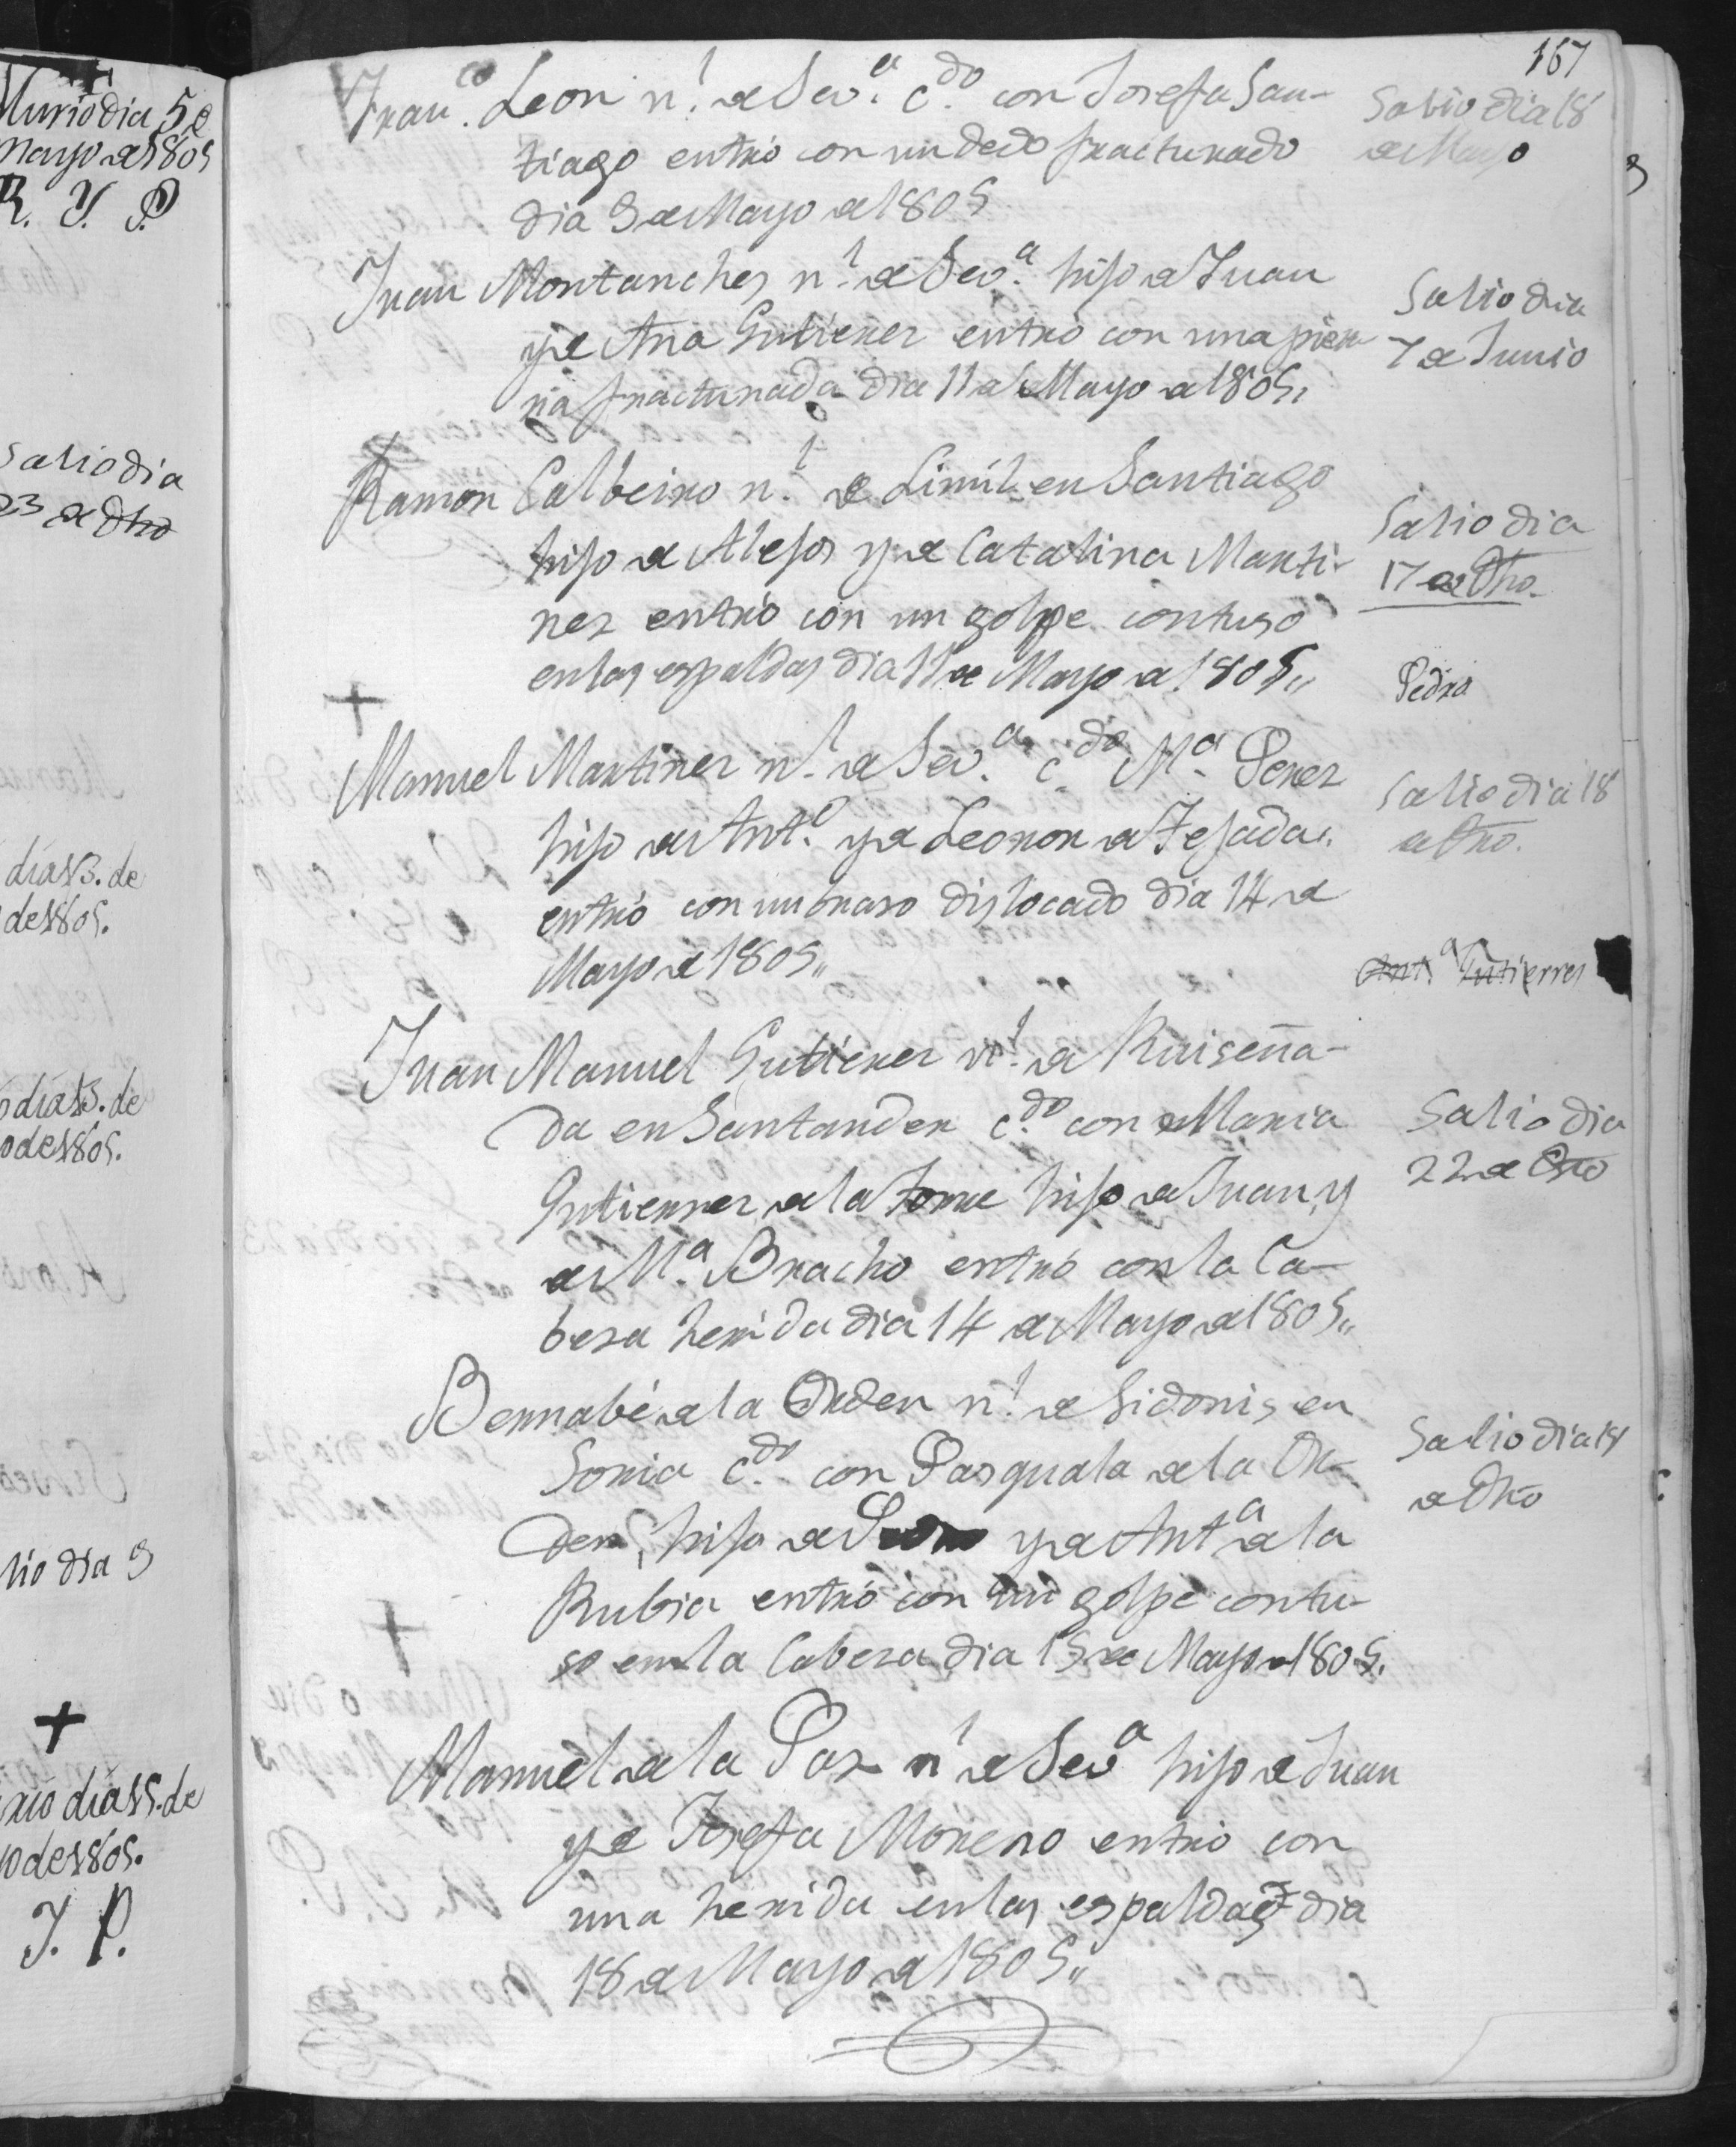 167
Franco. Leon nl. de Seva. cdo. con Josefa San-
tiago entró con un dedo fracturado
dia 9 de Mayo de 1805
Salio dia 18
de Mayo
Juan Montanches nl. de Seva. hijo de Juan
y de Ana Gutierrez entró con una pier-
na fracturada dia 11 de Mayo de 1805,,
Salio dia
7 de Junio
Ramon Calbeiro nl. de Limil en Santiago
hijo de Alejos y de Catalina Marti-
nez entró con un golpe contuso
en las espaldas dia 11 de Mayo de 1805,,
Salio dia
17 de Dho.
Pedro
+
Manuel Martinez nl. de Seva. cdo. Ma. Perez
hijo de Anto. y de Leonor de Tejada.
entró con un braso dislocado dia 14 de
Mayo de 1805,,
Salio dia 18
de Dho.
Anta. Gutierres
Juan Manuel Gutierez nl. de Ruiseña-
da en Santander cdo. con Maria
Gutierrez de la Torre hijo de Juan, y
de Ma. Bracho entró con la Ca-
beza herida dia 14 de Mayo de 1805,,
Salio dia
22 de Dho
Bernabé de la Orden nl. de Sidonis en
Soria cdo. con Pasquala de la Or-
den, hijo de y de Anta de la
Rubia entró con un golpe contu-
so en la Cabeza dia 15 de Mayo de 1805.
Salio dia 19
de Dho
+
Manuel de la Paz nl de Seva hijo de Juan
y de Josefa Moreno entró con
una herida en las espaldas dia
18 de Mayo de 1805,,
Murio dia 5 de
Mayo de 1805
R. Y. P.
Salio dia
23 de Dho
dia 13. de
de 1805.
dia 13. de
de 1805.
lio dia 9
+
rio dia 15. de
de 1805.
J. P.